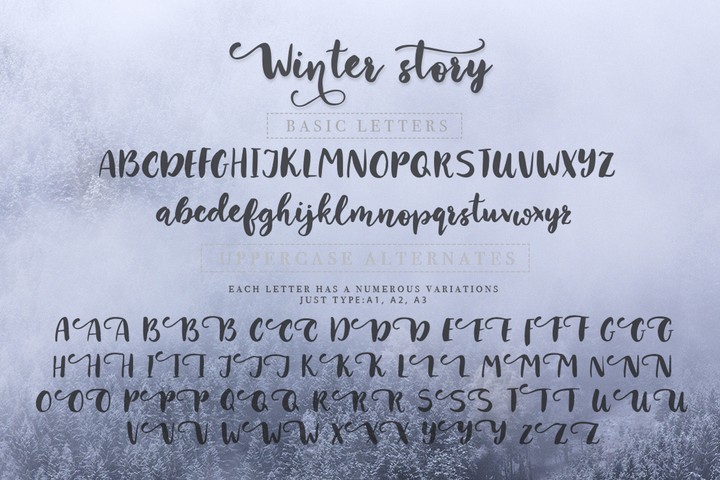 Winter story
BASIC LETTERS
ABCDEFGHIJKLMNOPQRSTUVWXYZ
abcdefghijklmnopqrstuvwxyz
UPPERCASE ALTERNATES
EACH LETTER HAS A NUMEROUS VARIATIONS
JUST TYPE:A1, A2, A3
AAA BBB CCC DDD EEE FFF GGG
HHH III JJJ KKK LLL MMM NNN
OOO PPP QQQ RRR SSS TTT UUU
VVV WWW XXX YYY ZZZ